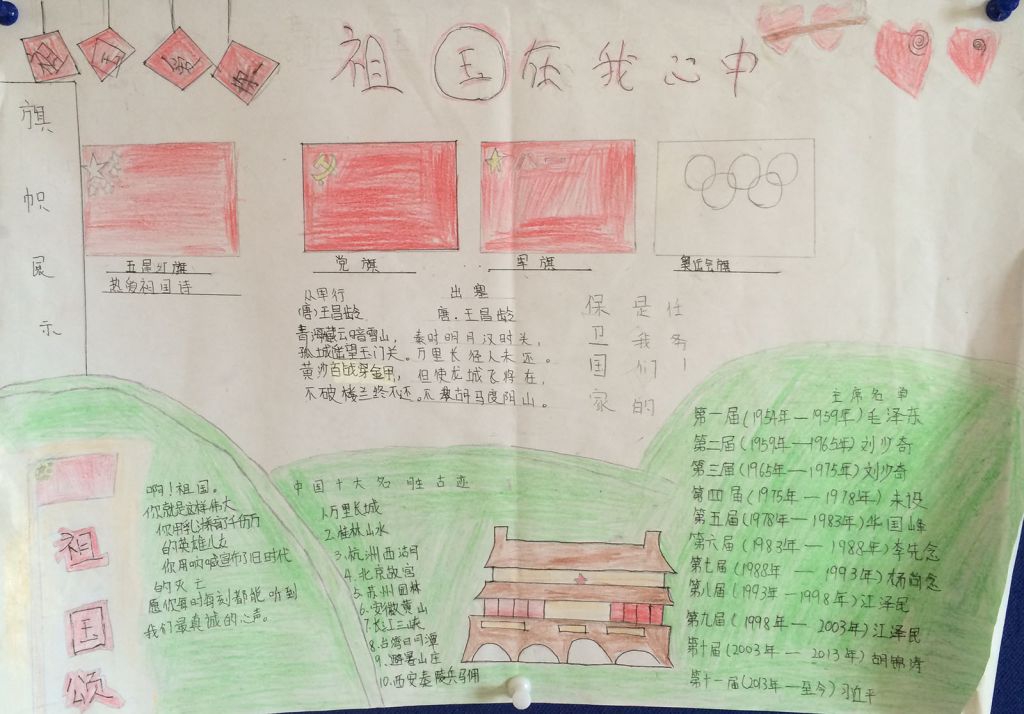 祖国在我心中
旗帜展示
五星红旗
党旗
军旗
奥运会旗
热爱祖国诗
从军行
(唐)王昌龄
青海藏云暗雪山,
孤城遥望玉门关。
黄沙百战穿金甲,
不破楼兰终不还。
出塞
唐.王昌龄
秦时明月汉时关,
万里长征人未还。
但使龙城飞将在,
不教胡马度阴山。
保卫国家
是我们的
任务!
祖国颂
啊!祖国。
你就是这样伟大
你用乳汁养育了千千万万
的英雄儿女
你用呐喊宣布了旧时代
的灭亡
愿你每时每刻都能听到
我们最真诚的心声。
中国十大名胜古迹
1.万里长城
2.桂林山水
3.杭州西湖
4.北京故宫
5.苏州园林
6.安徽黄山
7.长江三峡
8.台湾日月潭
9.避暑山庄
10.西安秦陵兵马俑
主席名单
第一届(1954年—1959年)毛泽东
第二届(1959年—1965年)刘少奇
第三届(1965年—1975年)刘少奇
第四届(1975年—1978年)未设
第五届(1978年—1983年)华国峰
第六届(1983年—1988年)李先念
第七届(1988年—1993年)杨尚昆
第八届(1993年—1998年)江泽民
第九届(1998年—2003年)江泽民
第十届(2003年—2013年)胡锦涛
第十一届(2013年—至今)习近平